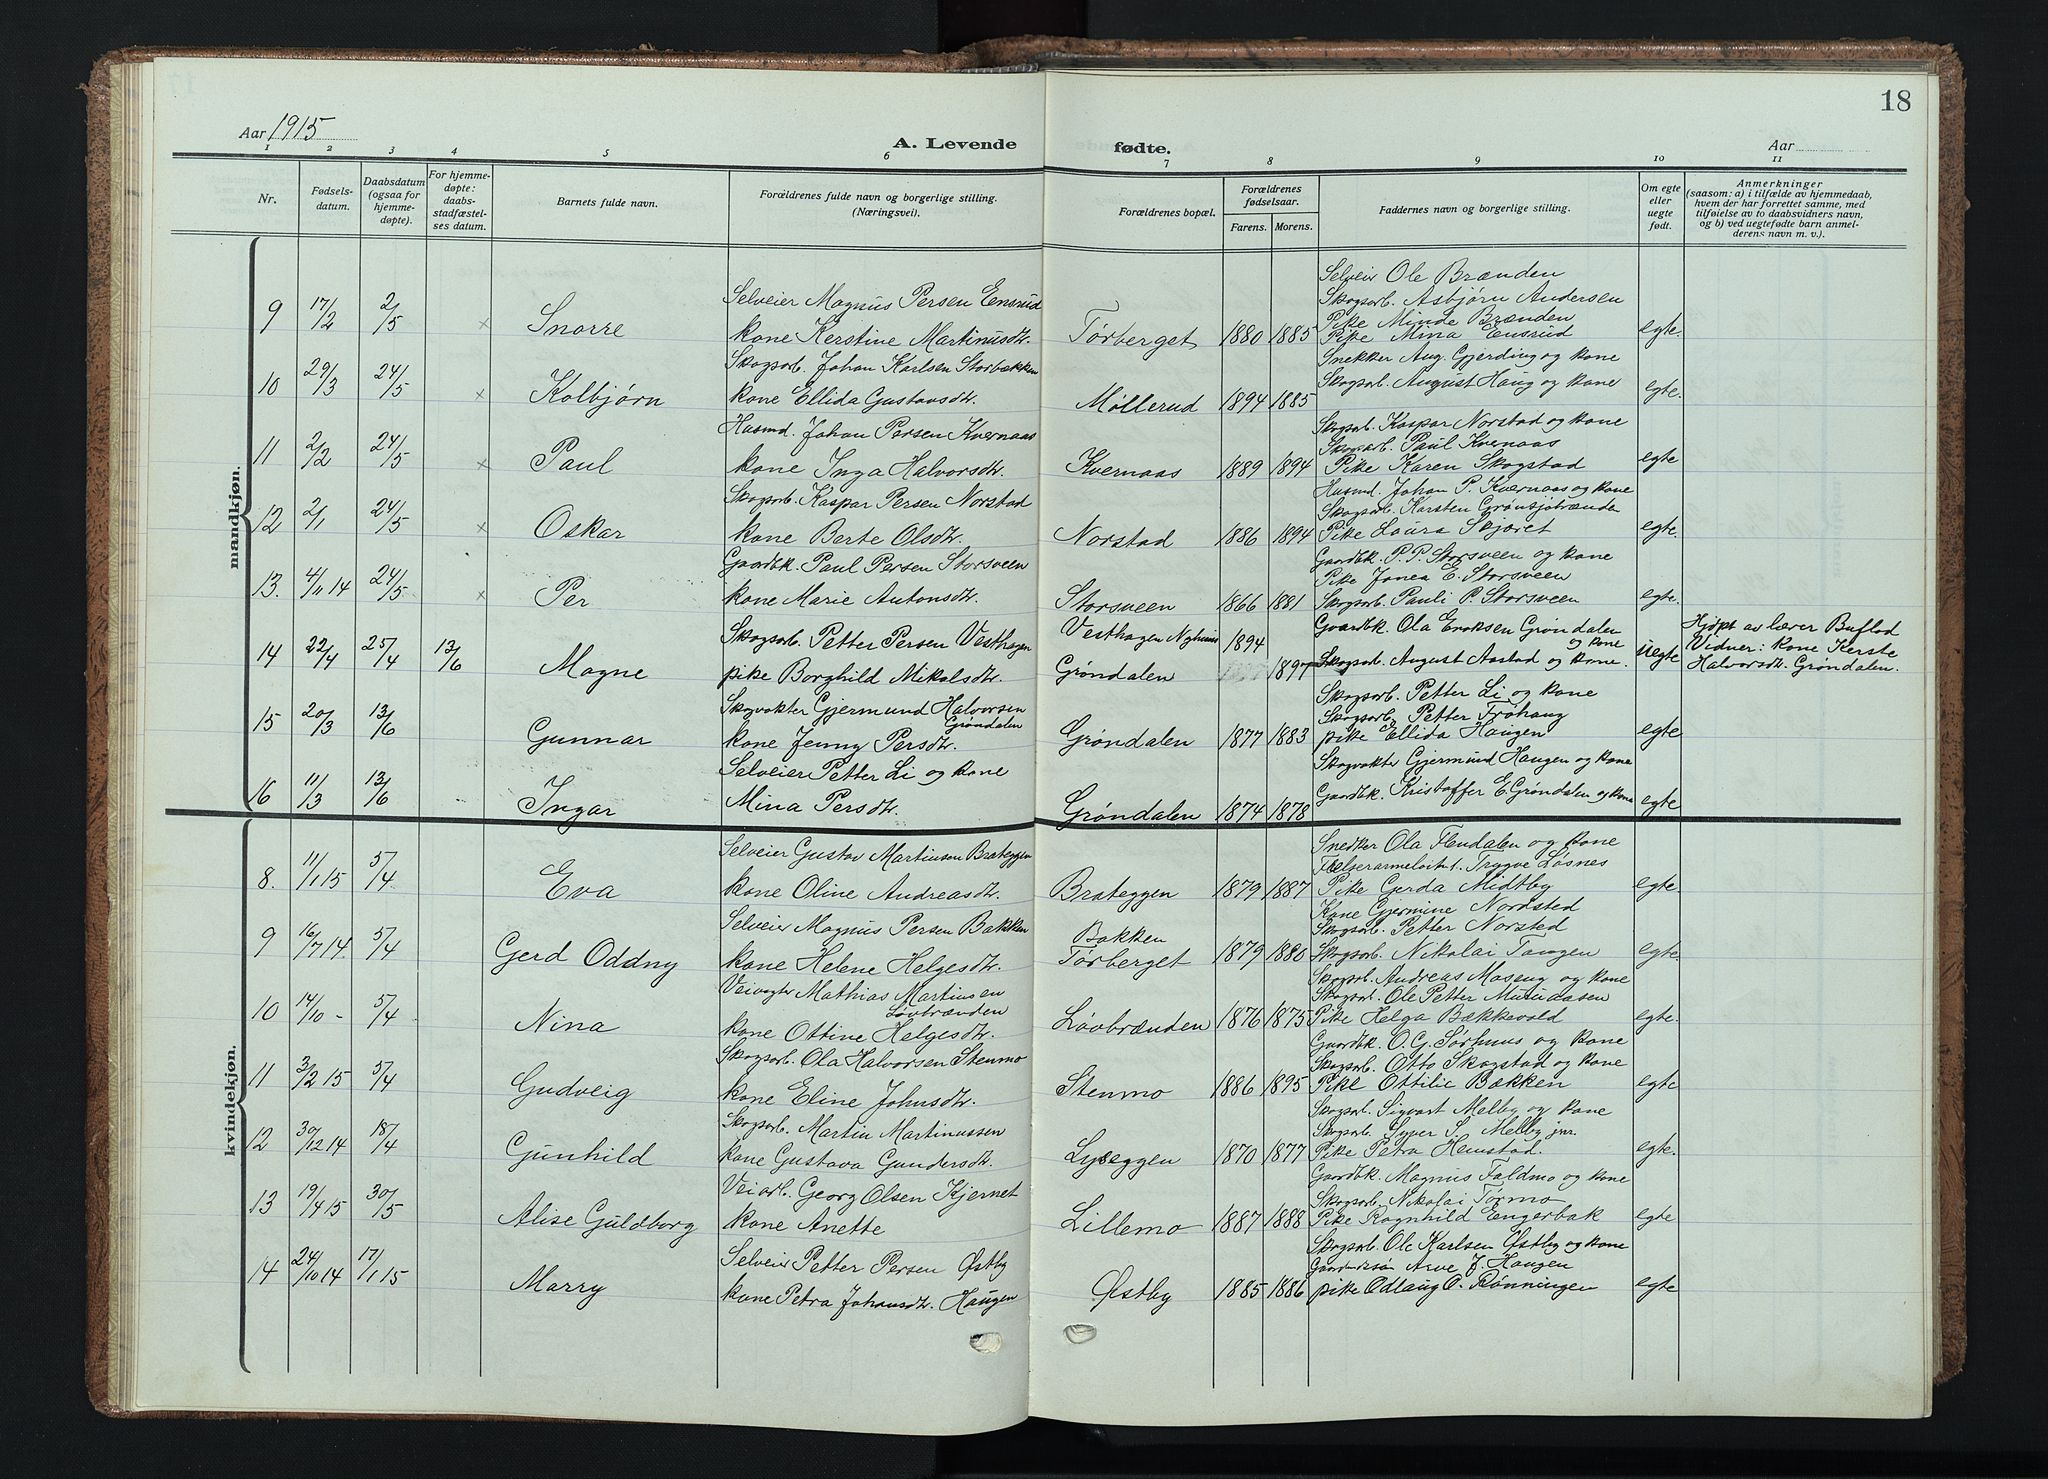 18
Aar 1915
A. Levende
fødte.
Aar
1 2 3 4 5 6 7 8 9 10 11
Nr.
Fødsels-
datum.
Daabsdatum
(ogsaa for
hjemme-
døpte).
For hjemme-
døpte:
daabs-
stadfæstel-
ses datum.
Barnets fulde navn.
Forældrenes fulde navn og borgerlige stilling.
(Næringsvei).
Forældrenes bopæl.
Forældrenes
fødselsaar.
Farens. Morens.
Faddernes navn og borgerlige stilling.
Om egte
eller
uegte
født.
Anmerkninger
(saasom: a) i tilfælde av hjemmedaab,
hvem der har forrettet samme, med
tilføielse av to daabsvidners navn,
og b) ved uegtefødte barn anmel-
derens navn m. v.).
mandkjøn.
Selveier Ole Brænden
Selveier Magnus Persen Ensrud
Skogsarb. Asbjørn Andersen
Pike Minde Brænden
9 17/2 2/5 × Snorre kone Kerstine Martinusdtr. Tørberget 1880 1885 Pike Mina Ensrud egte.
Skogsarb. Johan Karlsen Storbækken
Snekker Aug. Gjerding og kone
10 29/3 24/5 × Kolbjørn kone Ellida Gustavsdtr. Møllerud 1894 1885 Skogsarb. August Haug og kone egte.
Husmd. Johan Persen Kvernaas
Skogsarb. Kaspar Norstad og kone
Skogsarb. Paul Kvernaas
11 2/2 24/5 × Paul kone Inga Halvorsdtr. Kvernaas 1889 1894 Pike Karen Skogstad egte
Skogsarb. Kaspar Persen Norstad
Husmd. Johan P. Kvernaas og kone
Skogsarb. Karsten Grønsjøbrænden
12 2/1 24/5 × Oskar kone Berte Olsdtr. Norstad 1886 1894 Pike Laura Skjæret egte.
Gaardbk. Paul Persen Storsveen
Gaardbk. P. P. Storsveen og kone
Pike Jonea E. Storsveen
13. 4/11 14 24/5 × Per kone Marie Antonsdtr. Storsveen 1866 1881 Skogsarb. Pauli P. Storsveen egte.
Skogsarb. Petter Persen Vesthagen Vesthagen 1894 Gaardbk. Ola Eriksen Grøndalen og kone Hjdpt av lærer Buflod
14 22/4 25/4 13/6 Magne pike Borghild Mikalsdtr. Grøndalen 1897 Skogsarb. August Aastad og kone. uegte Vidner: kone Kerste
Halvorsdtr. Grøndalen.
Skogvokter Gjermund Halvorsen
Grøndalen
Skogsarb. Petter Li og kone
Skogsarb. Petter Frøhaug
15 20/3 13/6 Gunnar kone Jenny Persdtr. Grøndalen 1877 1883 pike Ellida Haugen egte
Selveier Petter Li og kone
Skogvokter Gjermund Haugen og kone
16 11/3 13/6 Ingar Mina Persdtr. Grøndalen 1874 1878 Gaardbk. Kristoffer E. Grøndalen og kone egte
kvindekjøn.
Selveier Gustav Martinsen Brateggen
Snedker Ola Flendalen og kone
Trygve Løsnes
8. 11/1 15 5/4 Eva kone Oline Andreasdtr. Brateggen 1879 1887 Pike Gerda Midtby egte.
Selveier Magnus Persen Bakken
Kone Gjermine Nordsted
Bakken
Skogsarb. Petter Norsted
9 16/7 14. 5/4 Gerd Oddny kone Helene Helgesdtr. Tørberget 1879 1880 Skogsarb. Nikolai Tangen egte.
Veivogter Mathias Martinsen
Løvbrænden
Skogsarb. Andreas Moseng og kone
Skogsarb. Ole Petter
10 14/10 - 5/4 Nina kone Ottine Helgesdtr. Løvbrænden 1876 1875 Pike Helga Bækkevold egte.
Skogsarb. Ola Halvorsen Stenmo
Gaardbk. O. G. Sørhuus og kone
Skogsarb. Otto Skogstad og kone
11 3/2 15 5/4 Gudveig kone Eline Johnsdtr. Stenmo 1886 1895 Pike Ottilie Bækken egte
Skogsarb. Martin Martinussen
Skogsarb. Sigvart Melby og kone
Skogsarb. Syver S. Melby jnr.
12 30/12 14 18/4 Gunhild kone Gustava Gundersdtr. Lyseggen 1870 1877 Pike Petra Hemstad. egte.
Veiarb. Georg Olsen Kjernet
Gaardbk. Magnus Faldmo og kone
Skogsarb. Nikolai Tørmo
13 19/4 15 30/5 Alise Guldborg kone Anette Lillemo 1887 1888 Pike Ragnhild Engerbak egte
Selveier Petter Persen Østby
Skogsarb. Ole Karlsen Østby og kone
Arve J. Haugen
14 24/10 14 17/1 15 Marry kone Petra Johansdtr. Haugen Østby 1885 1886 pike Odlaug O. Rønningen egte